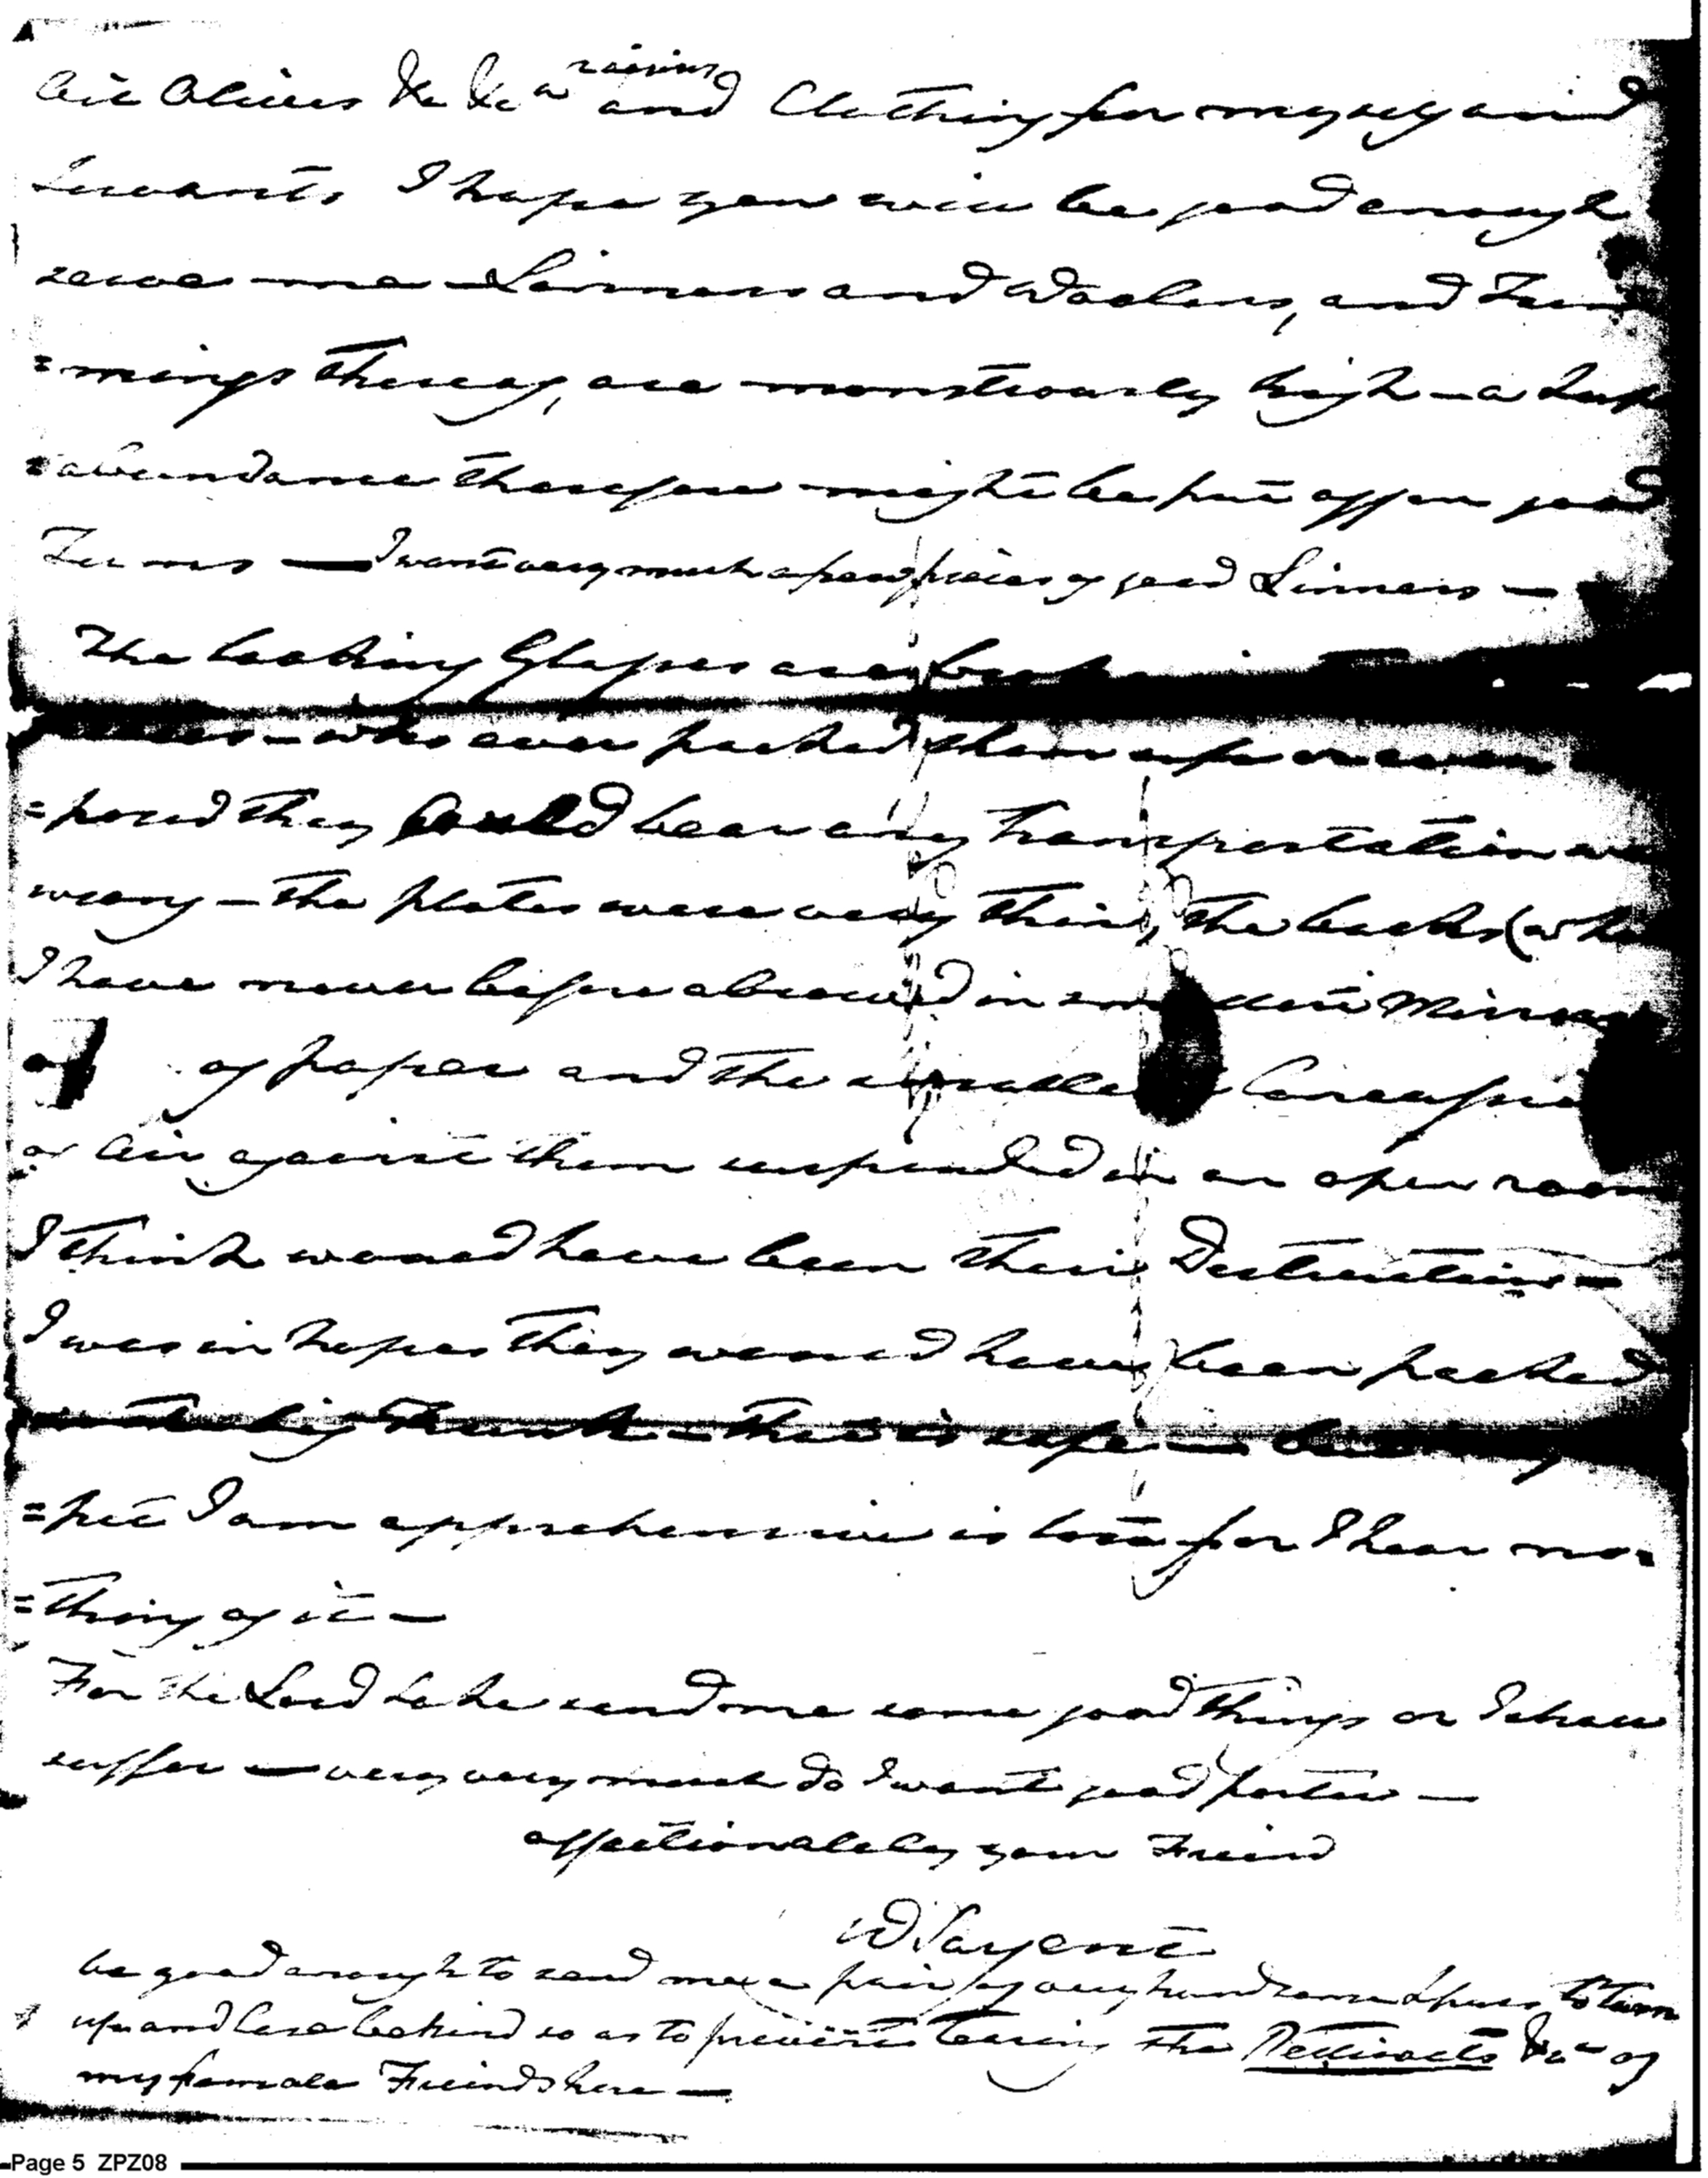 Oil Olives &c &c a raisins and Clothing for myself and
servants I hope you will be good enough
serve me – Linnens and Woolens, and Trim
=mings thereof, are monstrously high – a Sup
=abundance therefore might be put off on good
Terms — I want very much a few pieces of good Linnens —
The looking Glasses are
– who ever packed them up or ever
=posed they could bear any transportation
– the plates were very thin, the backs (
I have never before observed in Mirrors
of paper and the smallest
of air against them suspended in an open room
I think would have been their Destruction –
I was in hopes they would have been packed
big Trunk – that is safe —
=pit I am apprehensive is lost for I hear no=
=thing of it —
For the Lord sake send me some good things or I shall
suffer — very very much do I want good porter —
affectionately your Friend
W Sargent
be good enough to send me a pair of very handsome Spurs, to turn
up and lese behind so as to prevent tearing the Petticoats &ca of
my female Friends here —
Page 5 ZPZ08